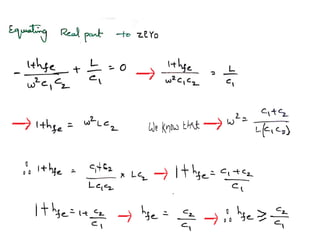 Equating Real part to zero
- 1+hfe/ω²C₁C₂ + L/C₁ = 0 → 1+hfe/ω²C₁C₂ = L/C₁
→ 1+hfe = ω²LC₂ We know that → ω² = C₁+C₂/L(C₁C₂)
∴ 1+hfe = C₁+C₂/LC₁C₂ × LC₂ → 1+hfe = C₁+C₂/C₁
1+hfe = 1+ C₂/C₁ → hfe = C₂/C₁ → ∴ hfe ≥ C₂/C₁